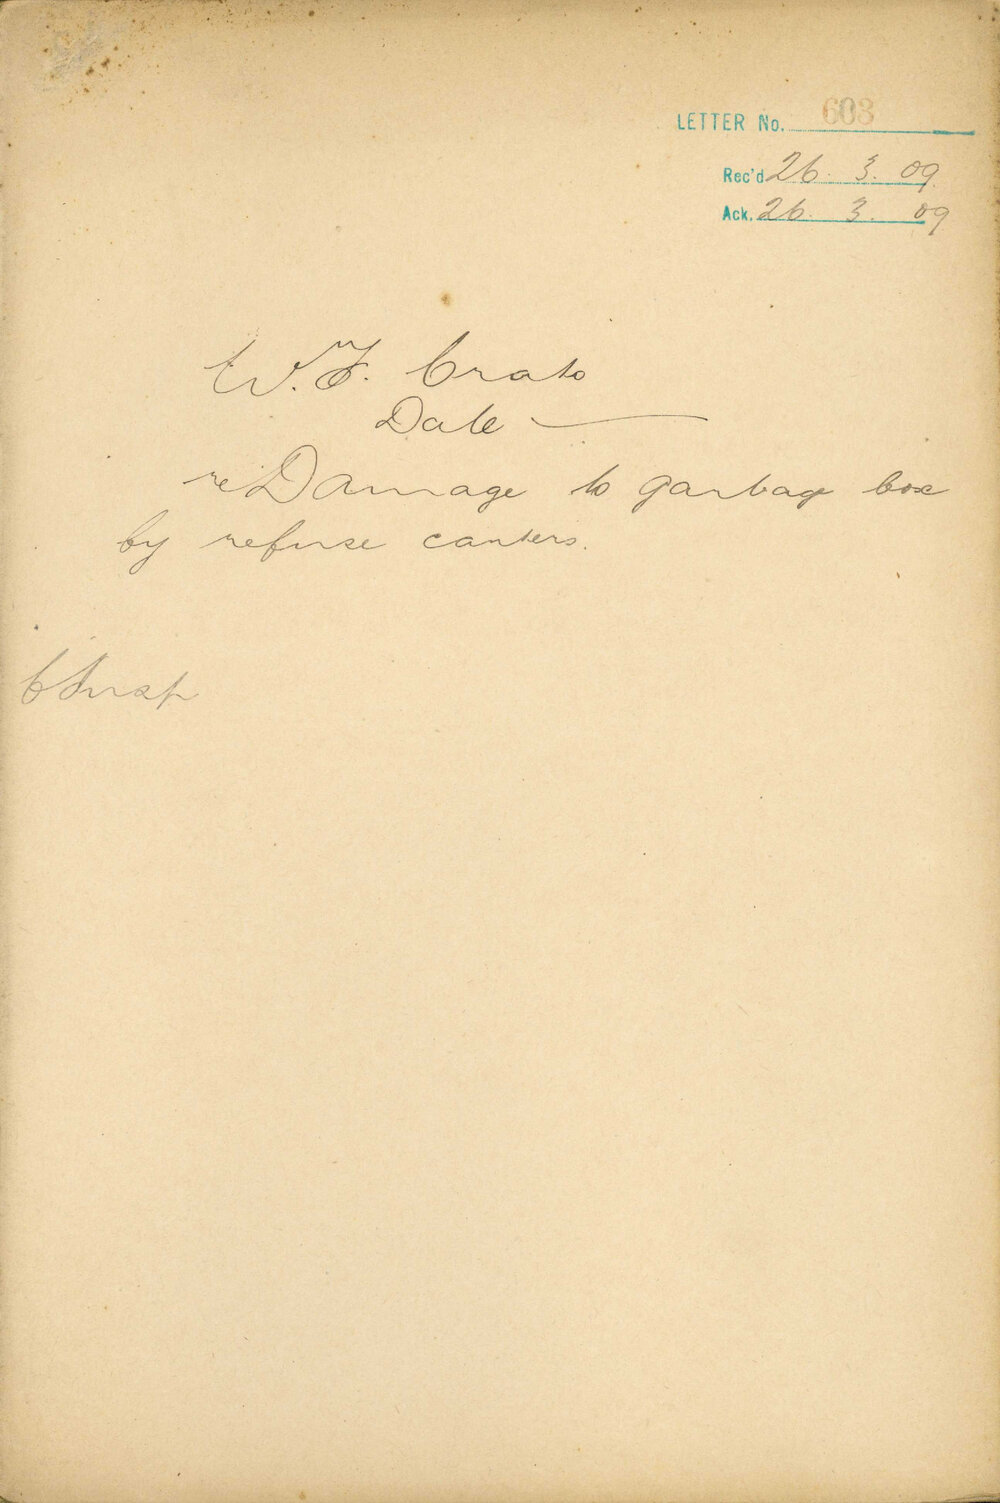 LETTER No. 603
Rec'd 26. 3. 09.
Ack. 26. 3. 09
W. F. Crato
Date —
re Damage to garbage box
by refuse carters.
C Insp